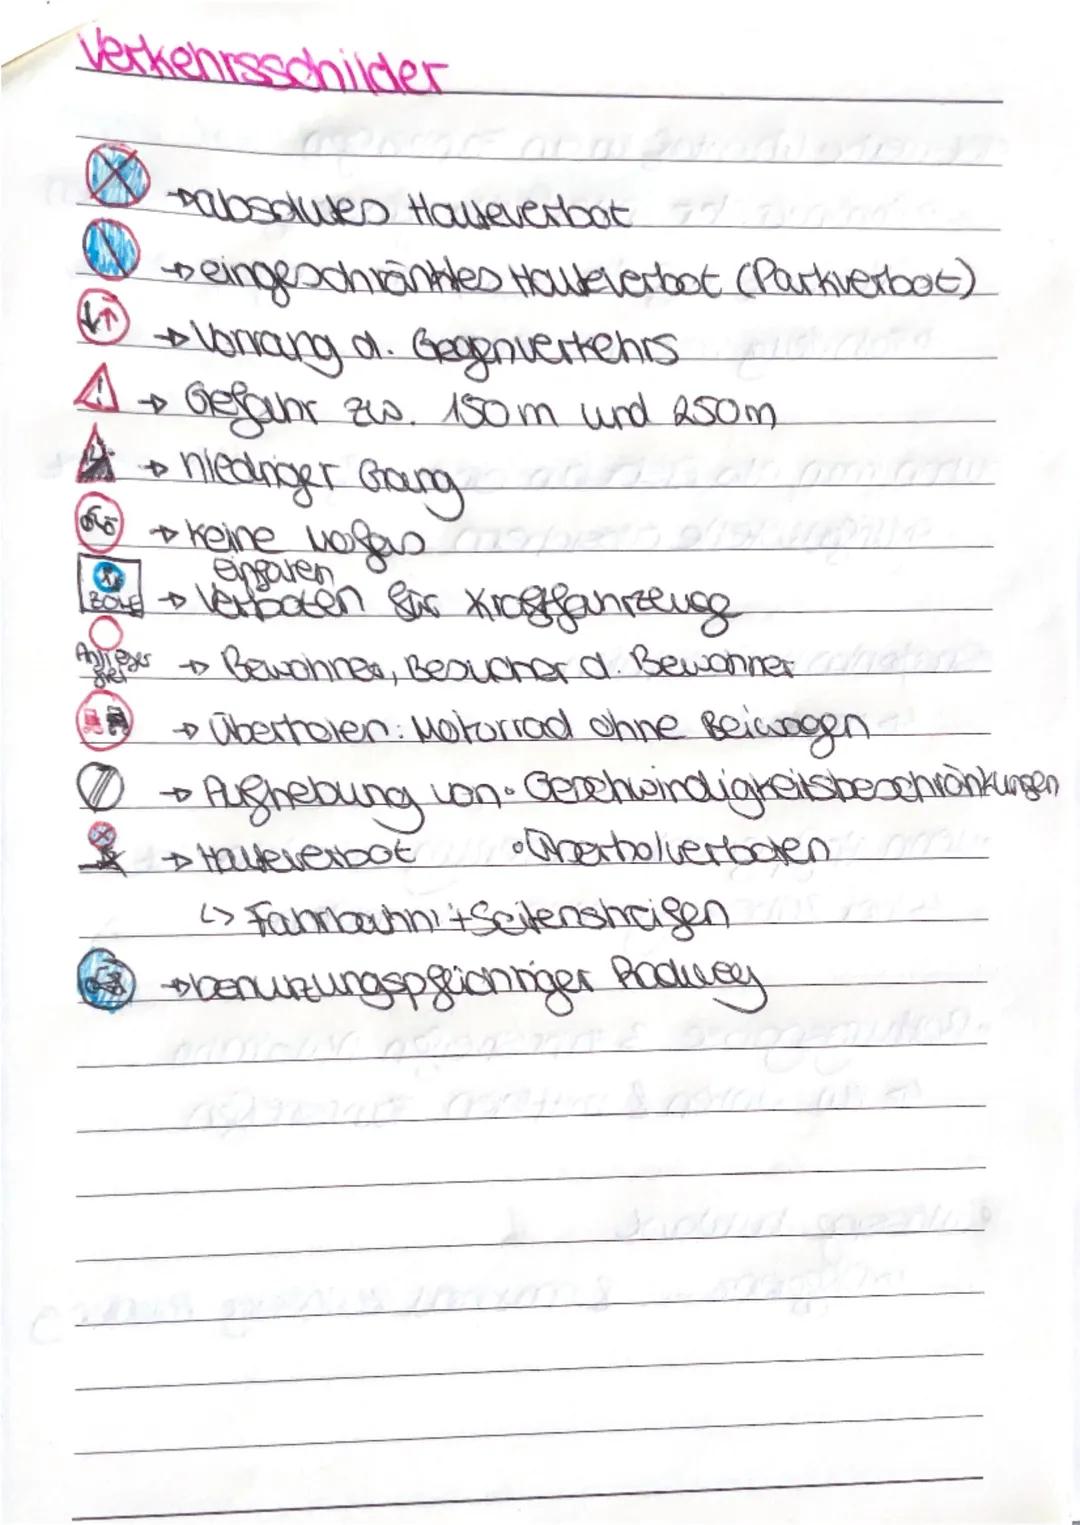 Verkehrsschilder
→ absolutes Halteverbot
→ eingeschränktes Halteverbot (Parkverbot)
→ Vorrang d. Gegenverkehrs
→ Gefahr zw. 150m und 250m
→ niedriger Gang
→ Keine Mofas
einfahren
ZONE → Verboten für Kraftfahrzeuge
Anlieger frei → Bewohner, Besucher d. Bewohner
→ Überholen: Motorrad ohne Beiwagen
→ Aufhebung von • Geschwindigkeitsbeschränkungen
→ Halteverbot • Überholverboten
↳ Fahrbahn + Seitenstreifen
→ benutzungspflichtiger Radweg